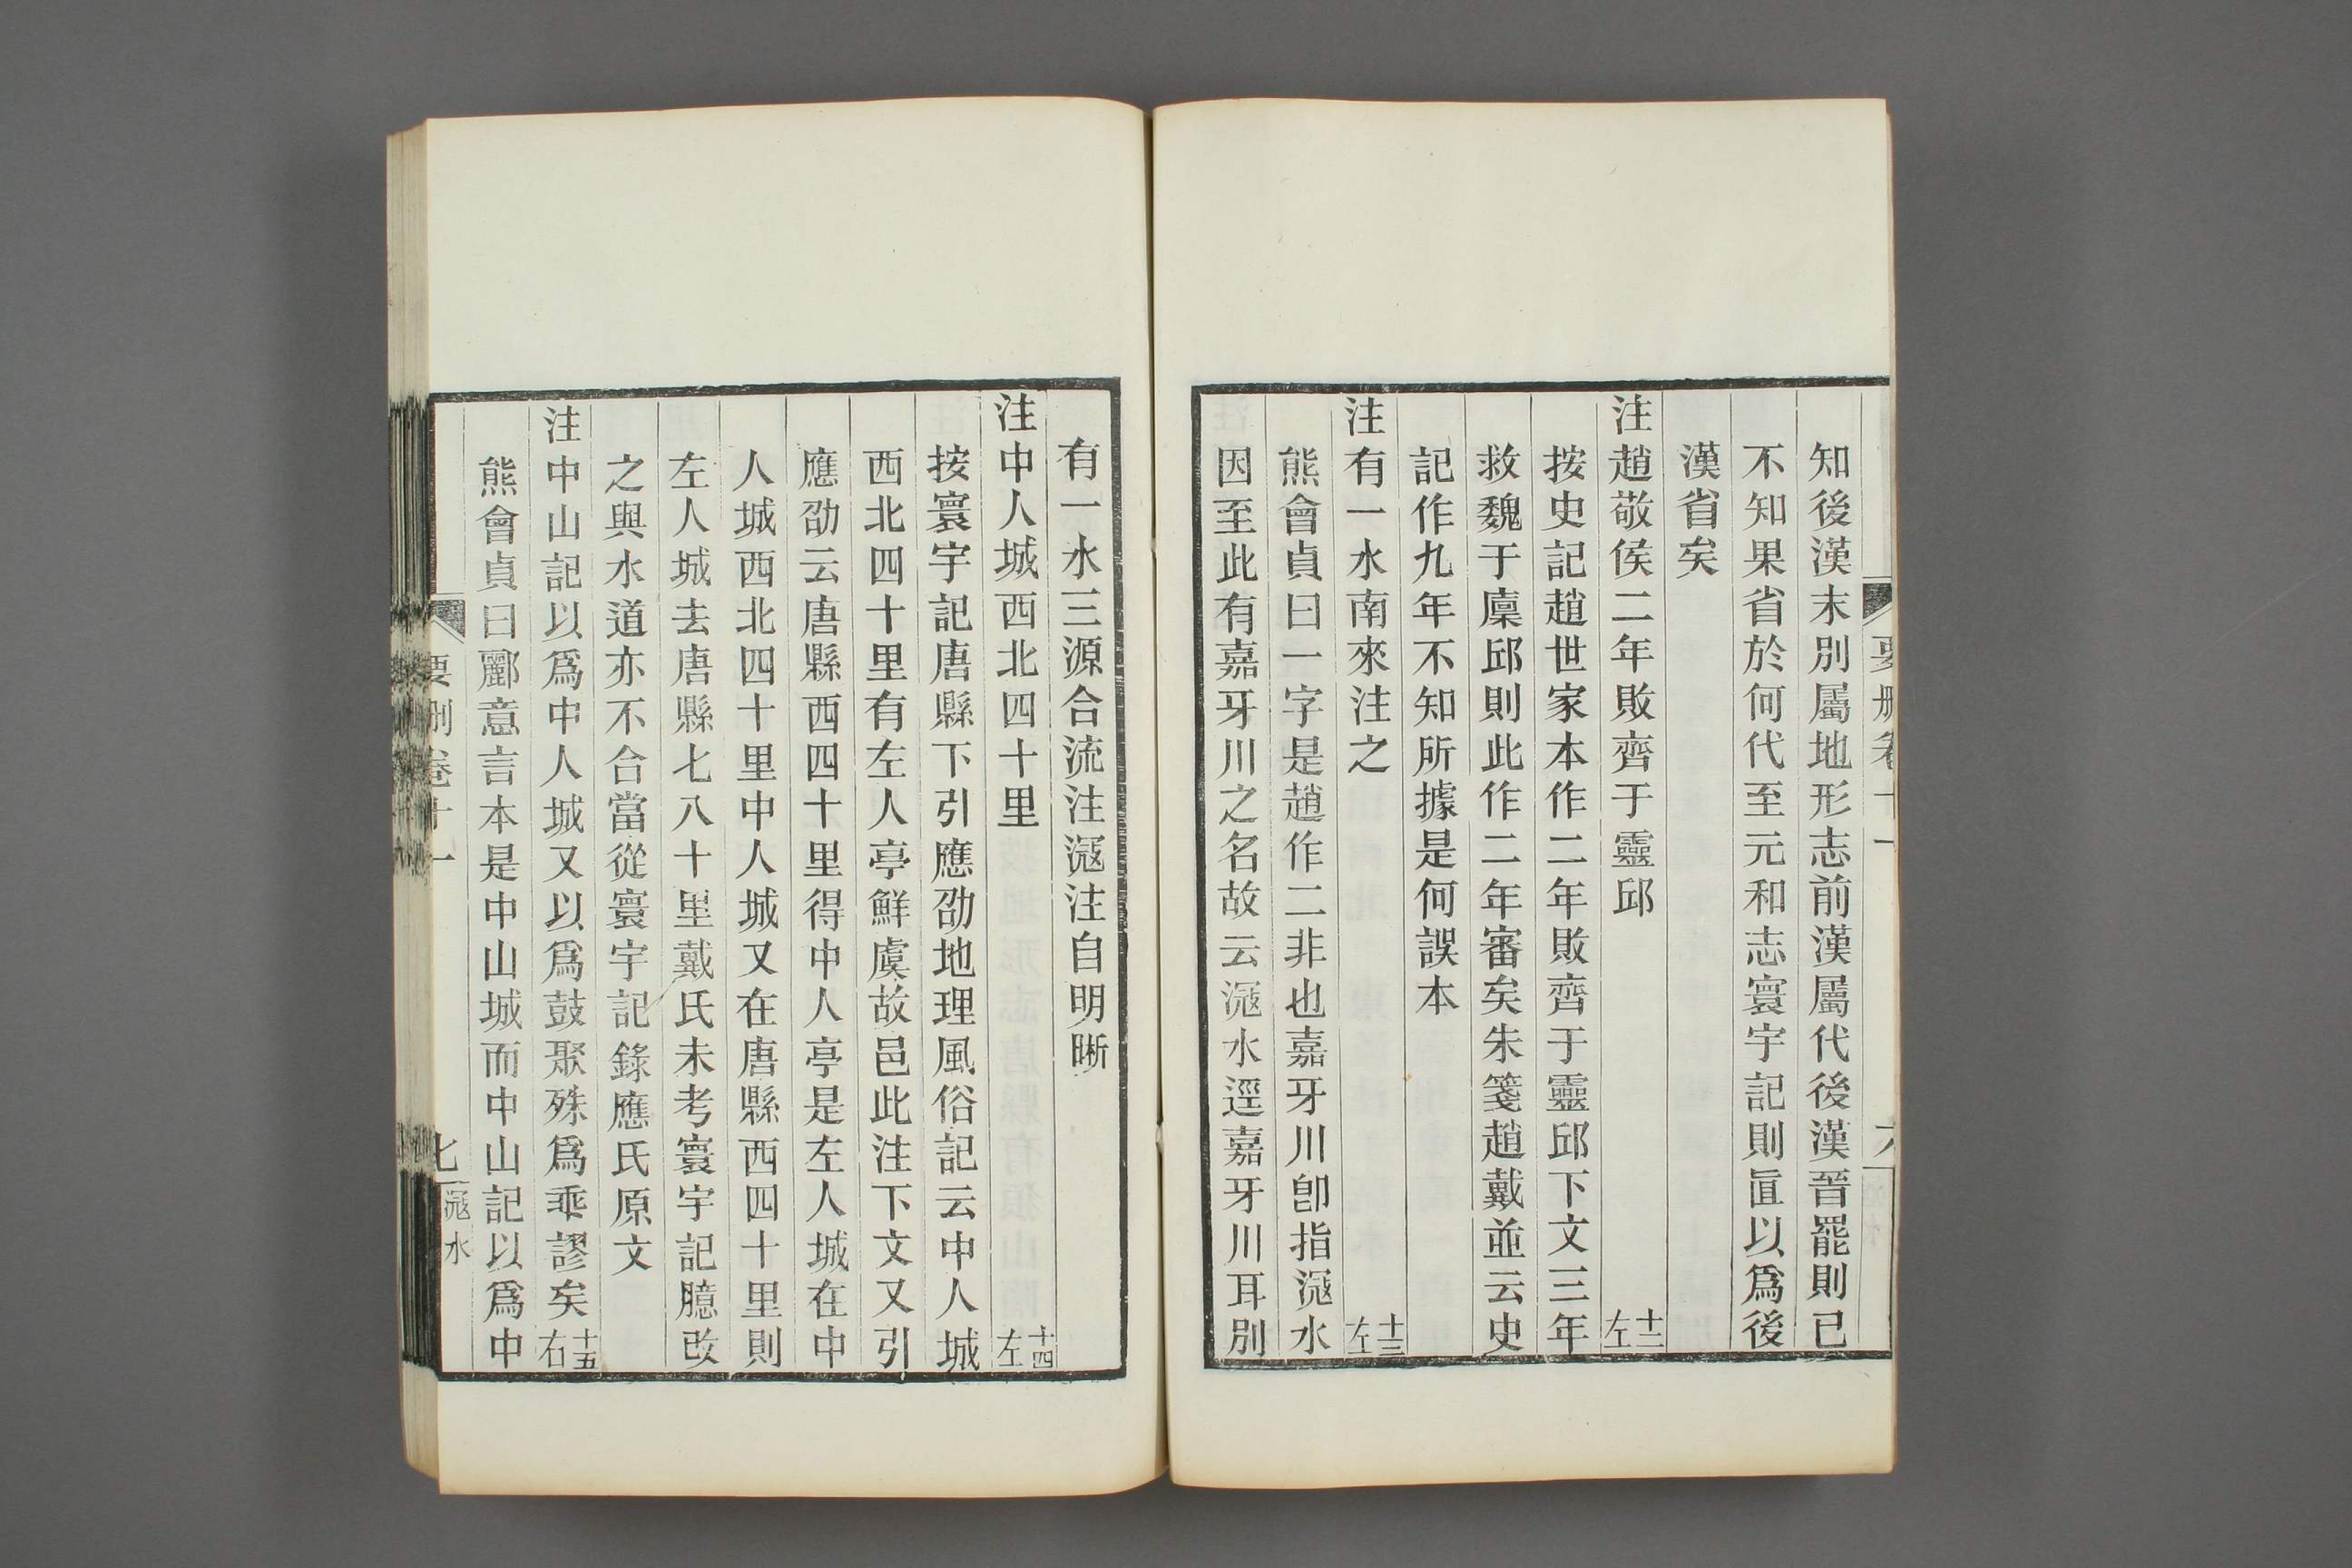 要刪卷十一
六
知後漢末別屬地形志前漢屬代後漢晉罷則已
不知果省於何代至元和志寰宇記則眞以爲後
漢省矣
注趙敬侯二年敗齊于靈邱 十二左
按史記趙世家本作二年敗齊于靈邱下文三年
救魏于廩邱則此作二年審矣朱箋趙戴並云史
記作九年不知所據是何誤本
注有一水南來注之 十三左
熊會貞曰一字是趙作二非也嘉牙川卽指滱水
因至此有嘉牙川之名故云滱水逕嘉牙川耳別
有一水三源合流注滱注自明晰
注中人城西北四十里 十四左
按寰宇記唐縣下引應劭地理風俗記云中人城
西北四十里有左人亭鮮虞故邑此注下文又引
應劭云唐縣西四十里得中人亭是左人城在中
人城西北四十里中人城又在唐縣西四十里則
左人城去唐縣七八十里戴氏未考寰宇記臆改
之與水道亦不合當從寰宇記錄應氏原文
注中山記以爲中人城又以爲鼓聚殊爲乖謬矣 十五右
熊會貞曰酈意言本是中山城而中山記以爲中
要刪卷十一
七 滱水